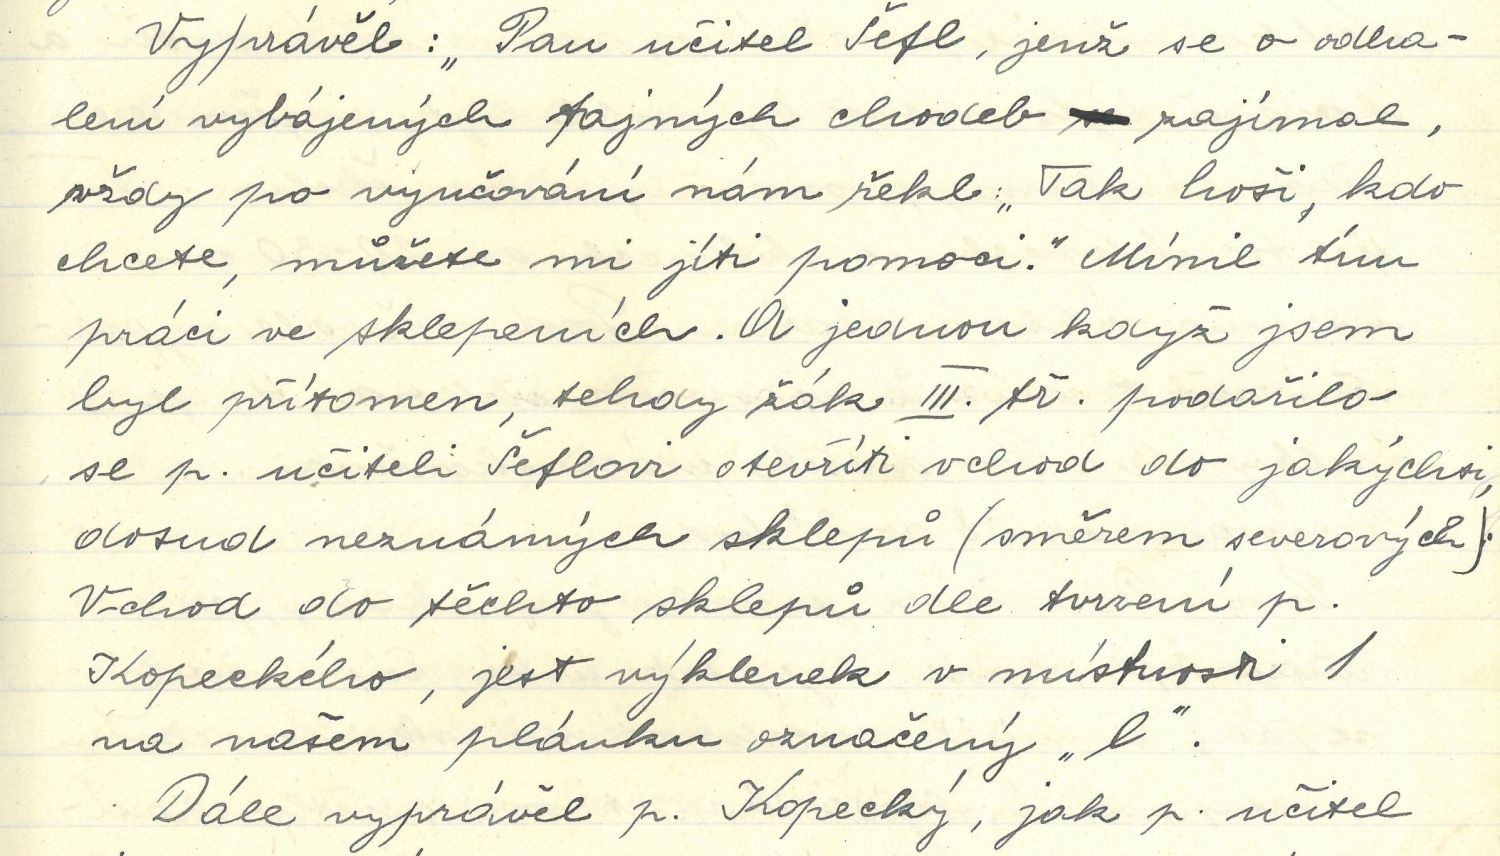 Vyprávěl: „Pan učitel Šefl, jenž se o odha-
lení vybájených tajných chodeb zajímal,
vždy po vyučování nám řekl: „Tak hoši, kdo
chcete, můžete mi jíti pomoci.“ Mínil tím
práci ve sklepeních. A jednou když jsem
byl přítomen, tehdy žák III. tř. podařilo
se p. učiteli Šeflovi otevříti vchod do jakýchsi,
dosud neznámých sklepů (směrem severových).
Vchod do těchto sklepů dle tvrzení p.
Kopeckého, jest výklenek v místnosti 1
na našem plánku označený „l“.
Dále vyprávěl p. Kopecký, jak p. učitel